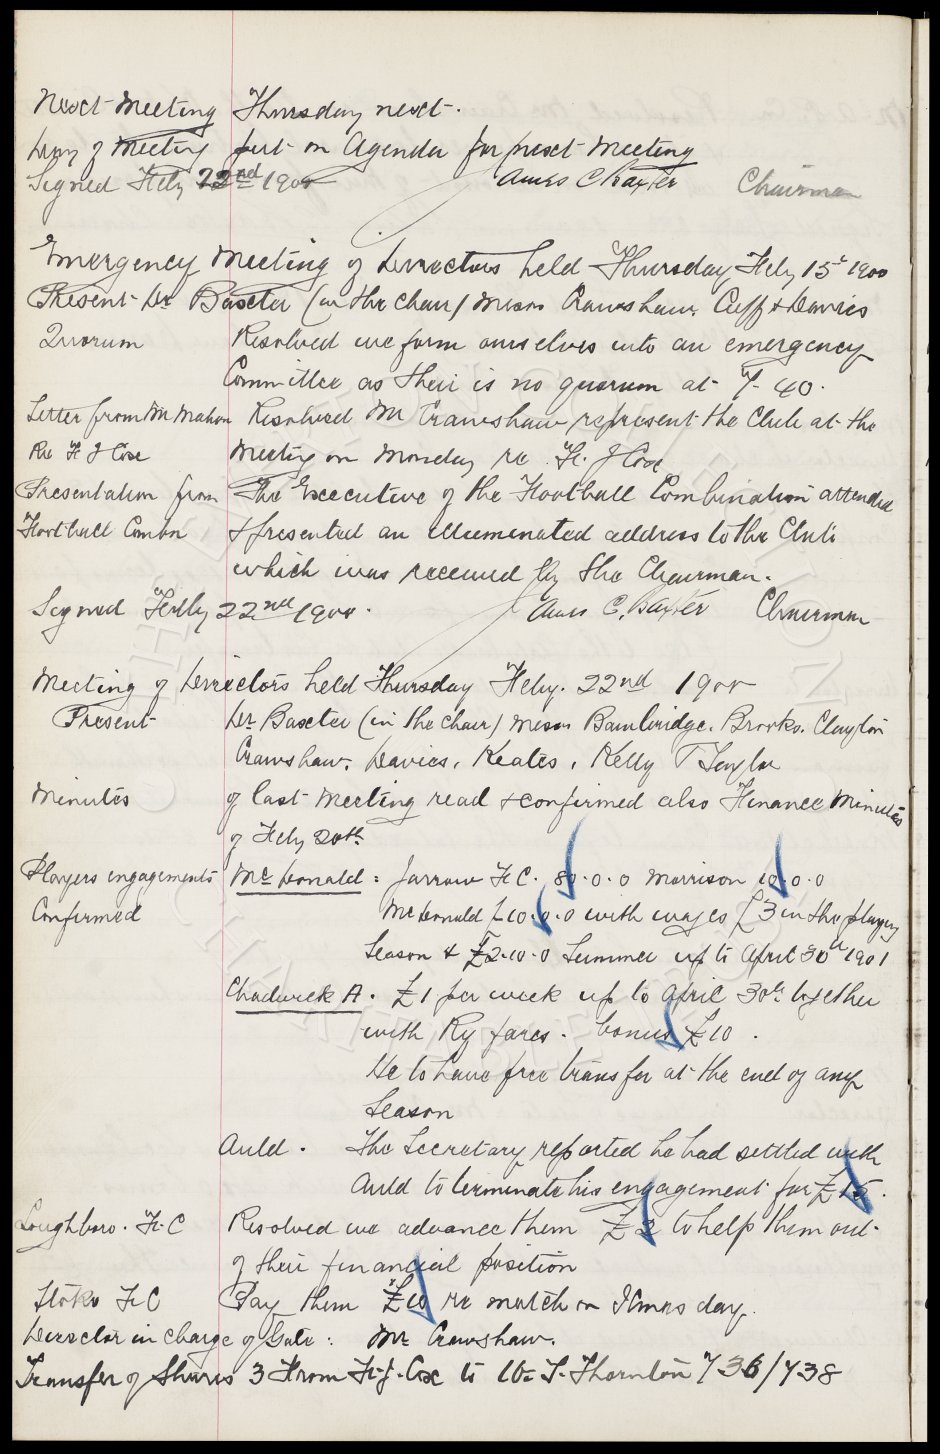 Next Meeting Thursday next.
Day of Meeting put on Agenda for next Meeting
Signed Feby 22nd 1900 James C Baxter Chairman
Emergency Meeting of Directors held Thursday Feby 15th 1900
Present Dr Baxter (in the chair) Messrs Crawshaw, Cuff & Davies
Quorum Resolved we form ourselves into an emergency
Committee as their is no quorum at 7-40.
Letter from Mr Mahon Resolved Mr Crawshaw represent the Club at the
Re F J Cox Meeting on Monday re F. J Cox
Presentation from The Executive of the Football Combination attended
Football Combn & presented an illuminated address to the Club
which was received by the Chairman.
Signed Feby 22nd 1900. James C. Baxter Chairman
Meeting of Directors held Thursday Feby. 22nd 1900
Present Dr Baxter (in the chair) Messrs Bainbridge, Brooks, Clayton
Crawshaw, Davies, Keates, Kelly T Taylor
Minutes of last Meeting read & confirmed also Finance Minutes
of Feby 20th.
Players engagements McDonald: Jarrow F C. 80.0.0 Morrison 10.0.0
Confirmed McDonald £10.0.0 with wages £3 in the playing
Season & £2.10.0 Summer up to April 30th 1901
Chadwick A. £1 per week up to April 30th together
with Ry fares. bonus £10.
He to have free transfer at the end of any
Season
Auld. The Secretary reported he had settled with
Auld to terminate his engagement for £15.
Loughboro. F. C Resolved we advance them £2 to help them out
of their financial position
Stoke F C Pay them £10 re match on Xmas day.
Director in charge of Gate: Mr Crawshaw.
Transfer of Shares 3 From F. J. Cox to T. Thornton 736/738